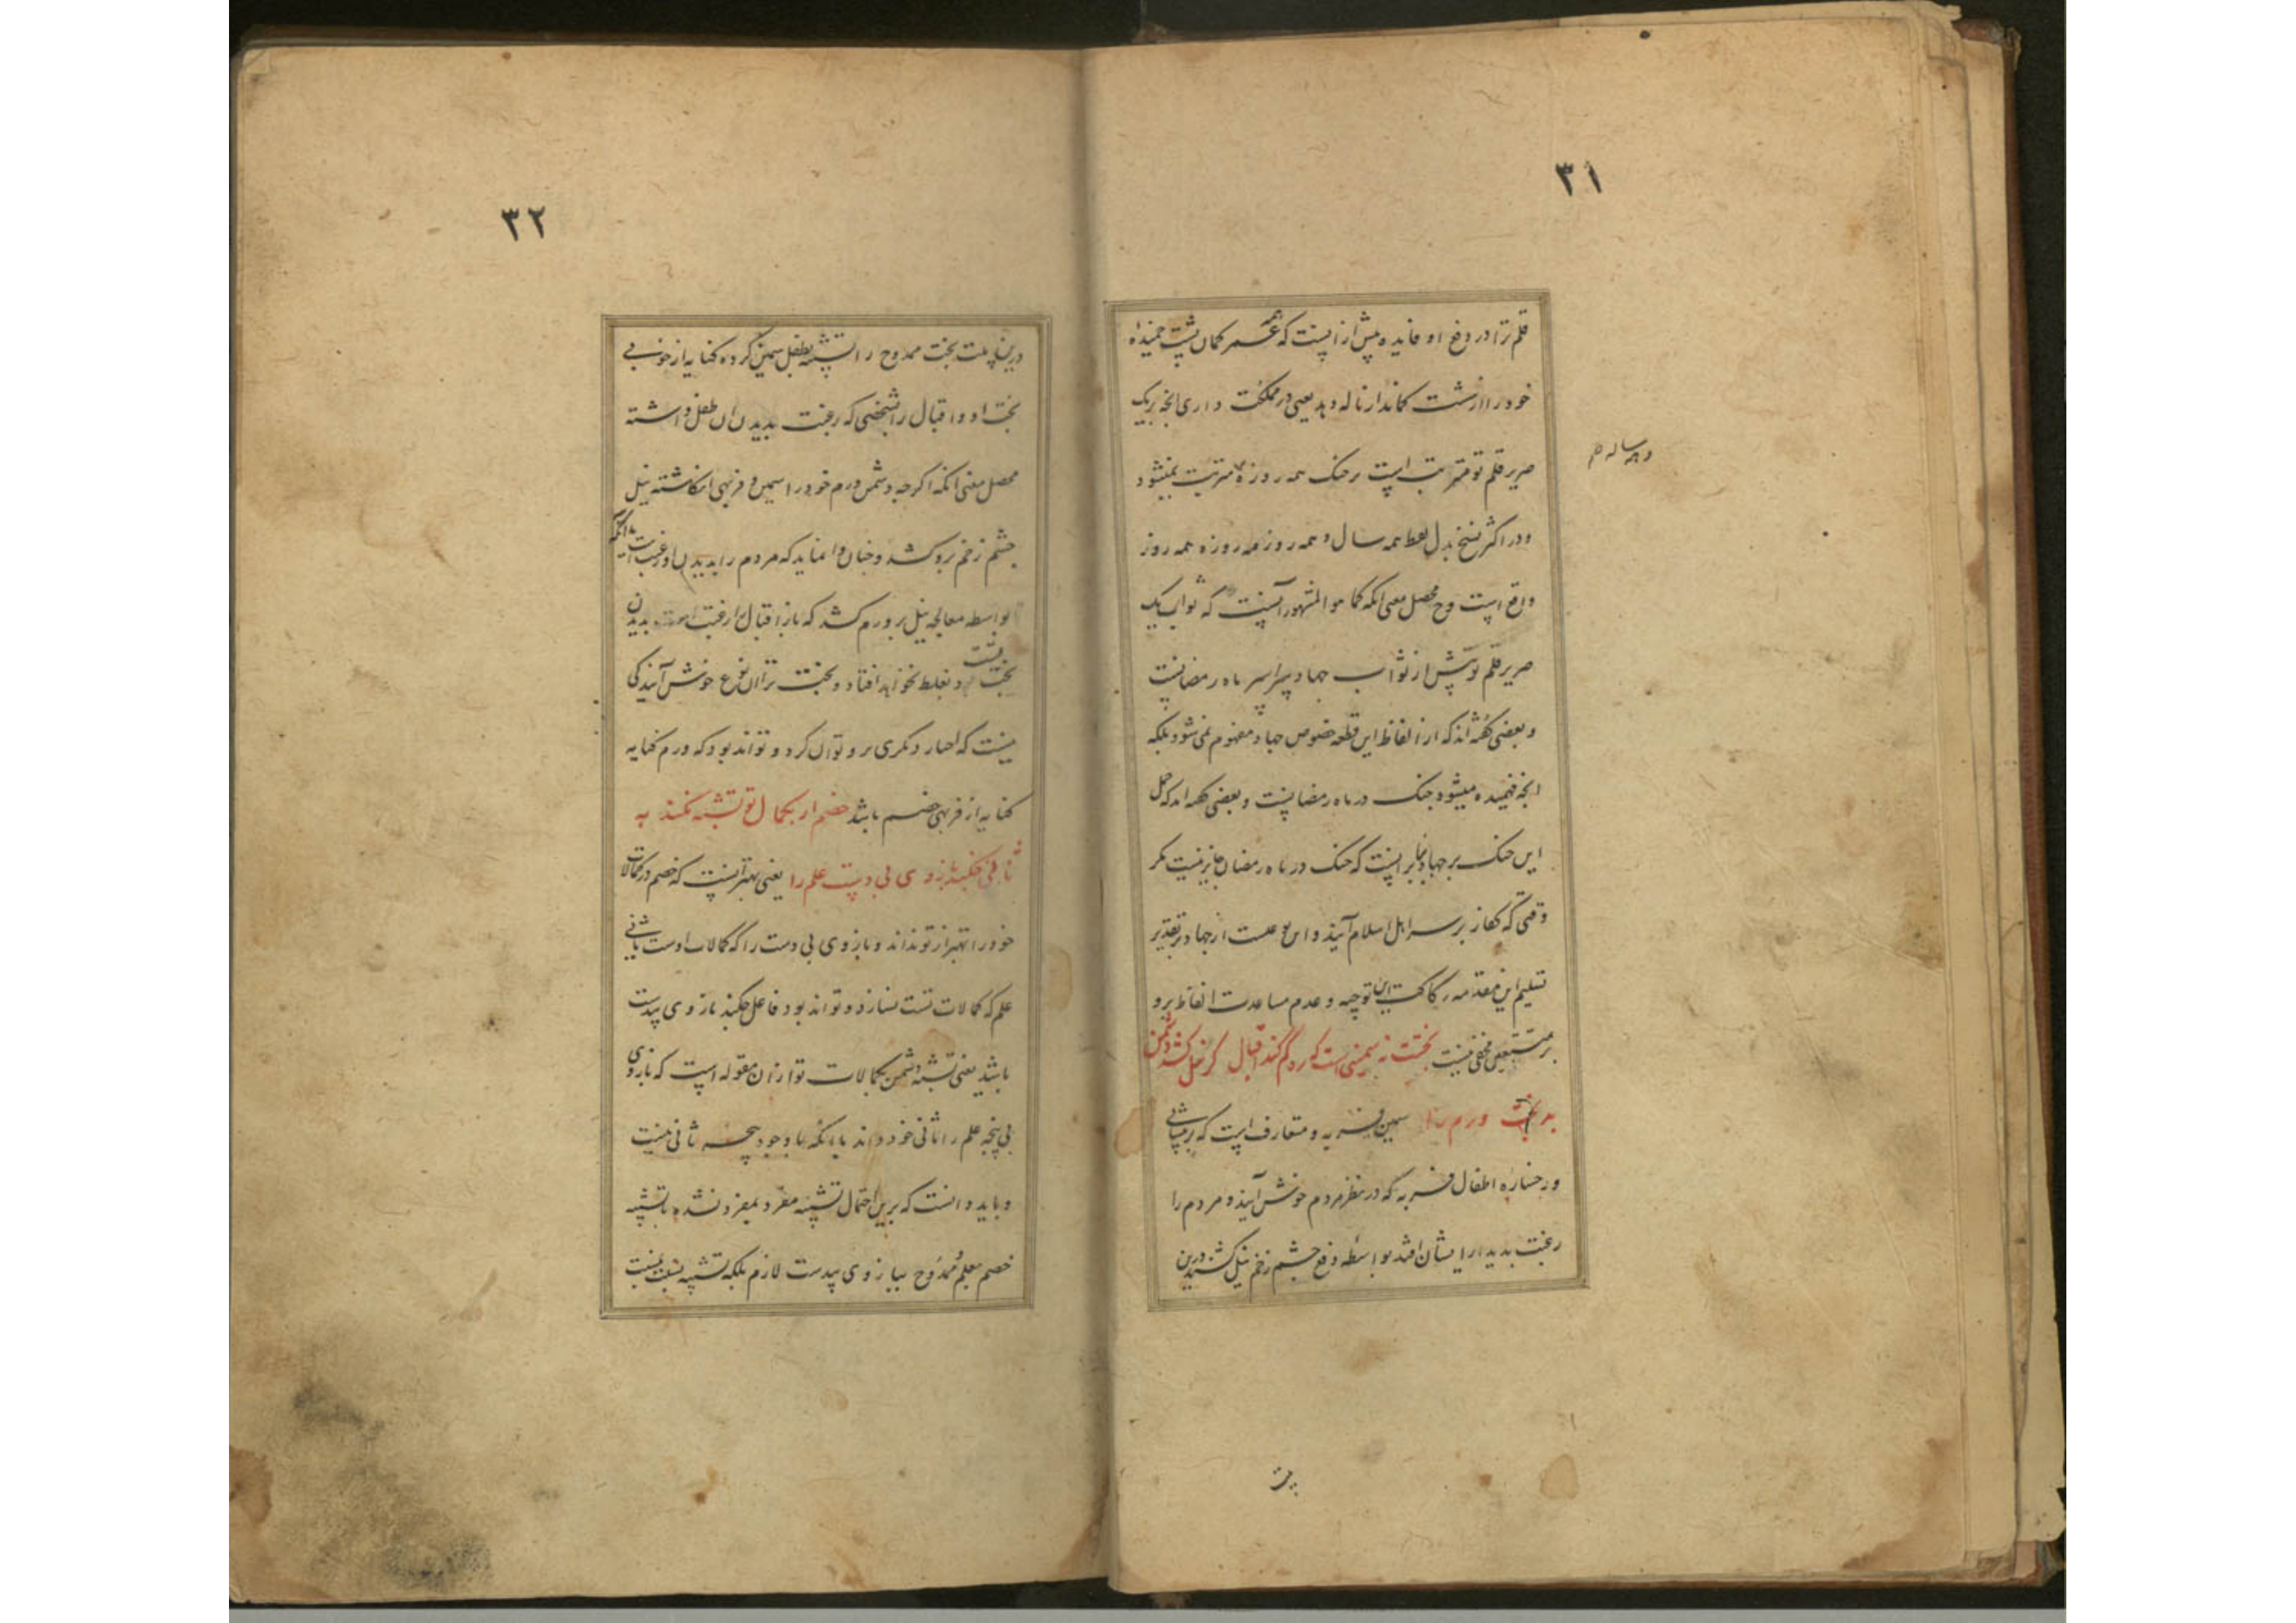 ۳۱
قلم ترا در وغ او فایده پیش ازینست که عمر کمان پشت خمیده
خود را از شست کماندار ناله دهد یعنی در مملکت داری انچه بر یک
صریر قلم تو مترتبست بر جنک همه روزه مترتب نمیشود
ودر اکثر نسخ بدل لفظ همه سال و همه روز مه روزه همه روز
واقع است وح محصل معنی انکه کما هو المشهور آنست که ثواب یک
صریر قلم تو بیش از ثواب جهاد سراسر ماه رمضانست
و بعضی گفته اند که از الفاظ این قطعه خصوص جهاد مفهوم نمی شود بلکه
انچه فهمیده میشود جنک در ماه رمضانست و بعضی گفته اند که حمل
این جنک بر جهاد بنابر اینست که جنک در ماه رمضان جایز نیست مکر
وقتی که کفار بر سر اهل اسلام آیند و این نوعست از جهاد و بر تقدیر
تسلیم این مقدمه رکاکت این توجیه و عدم مساعدت الفاظ برو
بر متتبعین مخفی نیست بختت نه سمینی است که ره گم کند اقبال گر نیل کشد دشمن
بدبخت ورم را سمین فربه و متعارف است که بر پیشانی
و رخساره اطفال فربه که در نظر مردم خوش آیند و مردم را
رغبت بدیدار ایشان افتد بواسطه دفع چشم زخم نیل کشند درین
بیت
۳۲
درین بیت بخت ممدوح را تشبیه بطفل سمین کرده کنایه از خوبی
بخت او و اقبال را بشخصی که رغبت بدیدن ان طفل داشته
محصل معنی انکه اکرچه دشمن ورم خود را سمین و فربهی انکاشته نیل
چشم زخم برو کشد و چنان وا نماید که مردم را بدیدن او رغبت است یا انکه
بواسطه معالجه نیل بر ورم کشد که باز اقبال را رغبت است بدیدن
بخت تست و بغلط نخواهد افتاد و بخت ترا ان نوع خوش آیندگی
نیست که اختیار دیکری برو توان کرد و تواند بود که ورم کنایه
کنایه از فربهی خصم باشد خصم ار بکمال تو تشبه نکند به
تا نی چکند بازوی بی دست علم را یعنی بهتر آنست که خصم در کمالات
خود را بهتر از تو نداند و بازوی بی دست را که کمالات اوست ثانی
علم که کمالات تست نسازد و تواند بود فاعل چکند بازوی بیدست
باشد یعنی تشبه دشمن بکمالات تو از ان مقوله است که بازوی
بی پنجه علم را ثانی خود داند با انکه با وجود پنجه ثانی نیست
و باید دانست که برین احتمال تشبیه مفرد بمفرد نشده تا تشبیه
خصم بعلم و ممدوح ببازوی بیدست لازم بلکه تشبیه نسبت بنسبت